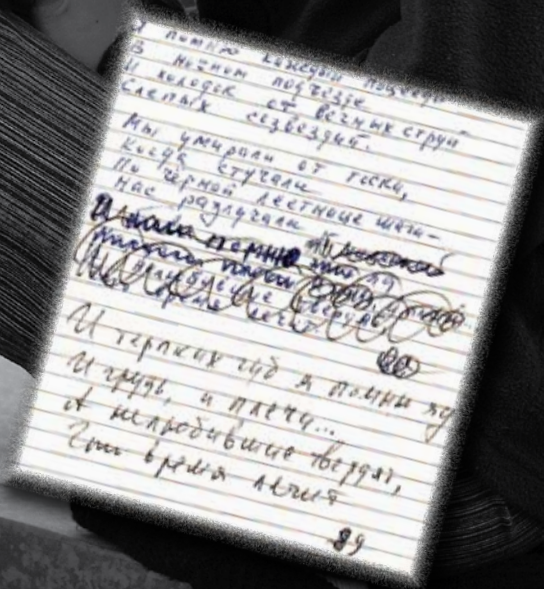 Я помню каждый поцелуй
В ночном подъезде
И холодок от вечных струй
Слепых созвездий.
Мы умирали от тоски,
Когда стучали
По чёрной лестнице шаги –
Нас разлучали
И терпких губ я помню яд
И грудь, и плечи...
А нелюбившие твердят,
Что время лечит
89